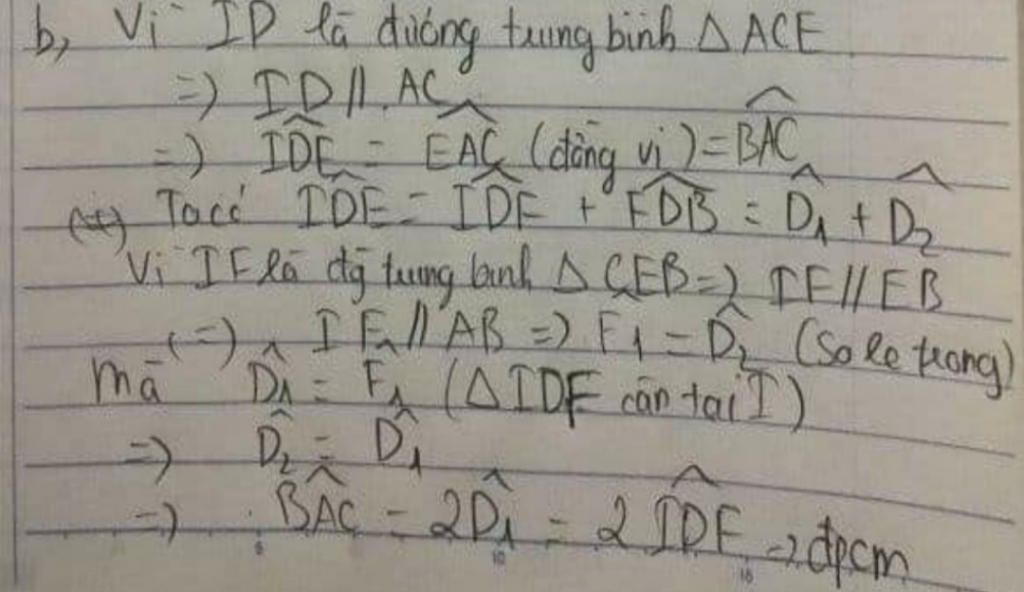 b, Vì ID là đường trung bình △ACE
=) ID // AC
=) IDE^ = EAC^ (đồng vị) = BAC^
(+) Ta có IDE^ = IDF^ + FDB^ = D1^ + D2^
Vì IF là đg trung bình △CEB =) IF // EB
(=) IF // AB =) F1^ = D2^ (So le trong)
mà D1^ = F1^ (△IDF cân tại I)
=) D2^ = D1^
=) BAC^ = 2D1^ = 2IDF^ → đpcm